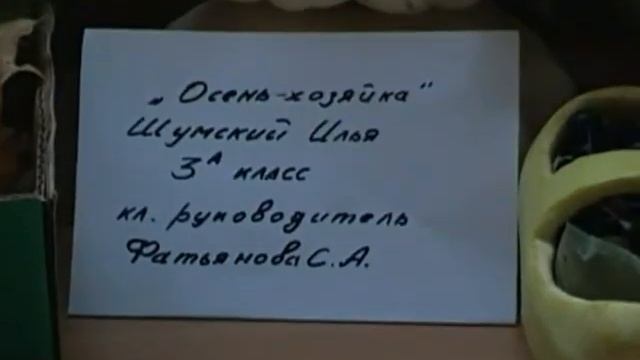 „Осень-хозяйка"
Шумский Илья
3А класс
кл. руководитель
Фатьянова С.А.